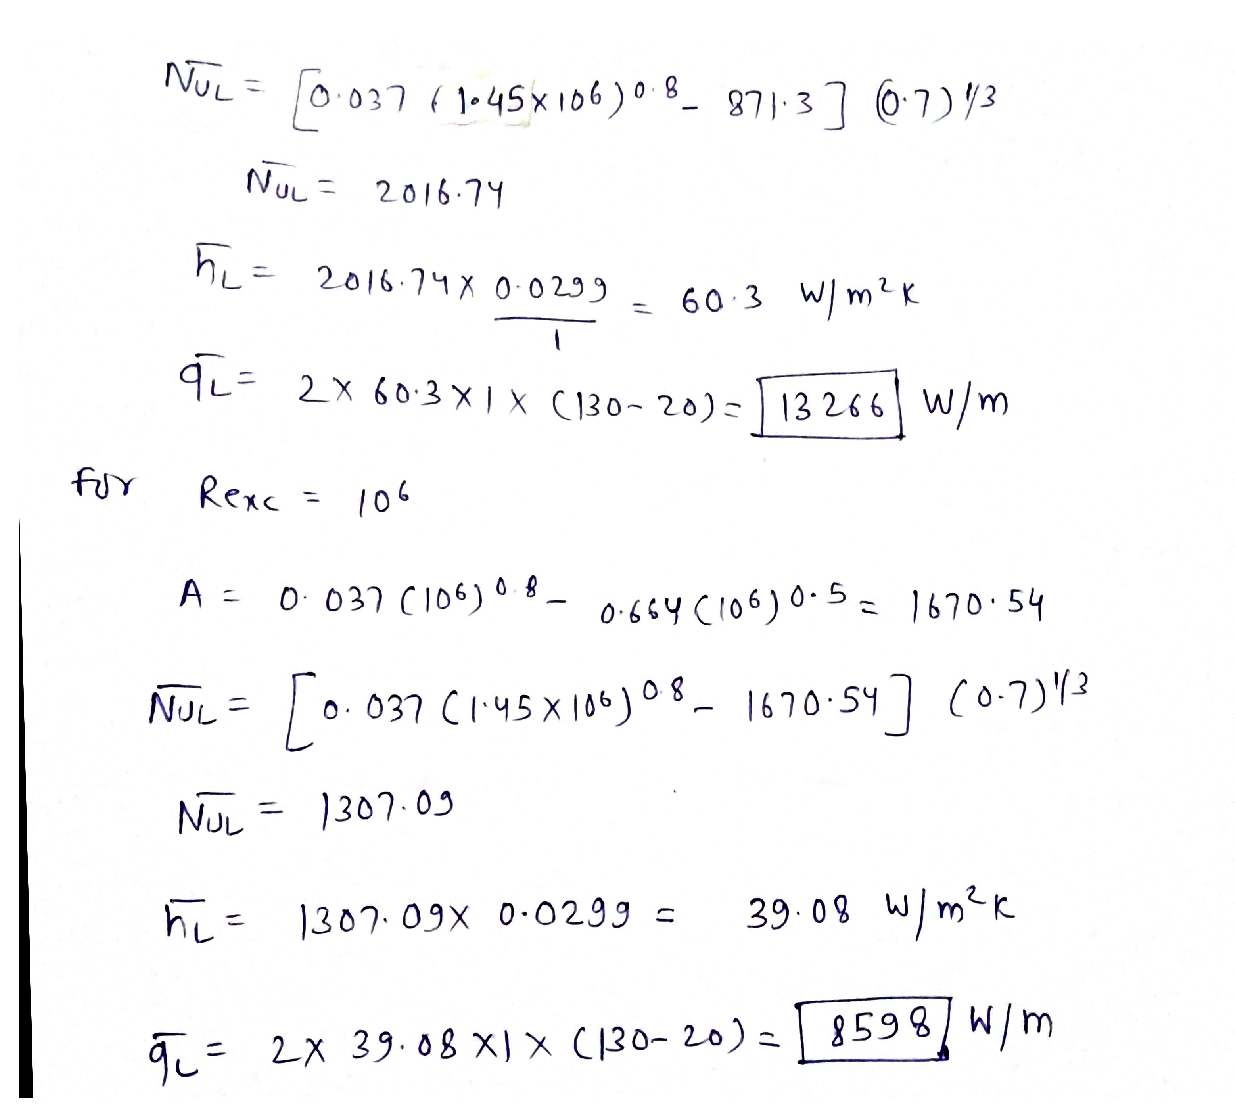 N̅u̅L = [0.037 (1.45×10⁶)^0.8 - 871.3] (0.7)^1/3
N̅u̅L = 2016.74
h̅L = 2016.74 × 0.0299/1 = 60.3 W/m²K
q̅L = 2× 60.3 ×1 × (130-20) = 13266 W/m
for Rexc = 10⁶
A = 0.037 (10⁶)^0.8 - 0.664 (10⁶)^0.5 = 1670.54
N̅u̅L = [0.037 (1.45×10⁶)^0.8 - 1670.54] (0.7)^1/3
N̅u̅L = 1307.09
h̅L = 1307.09× 0.0299 = 39.08 W/m²K
q̅L = 2× 39.08 ×1 × (130-20) = 8598 W/m